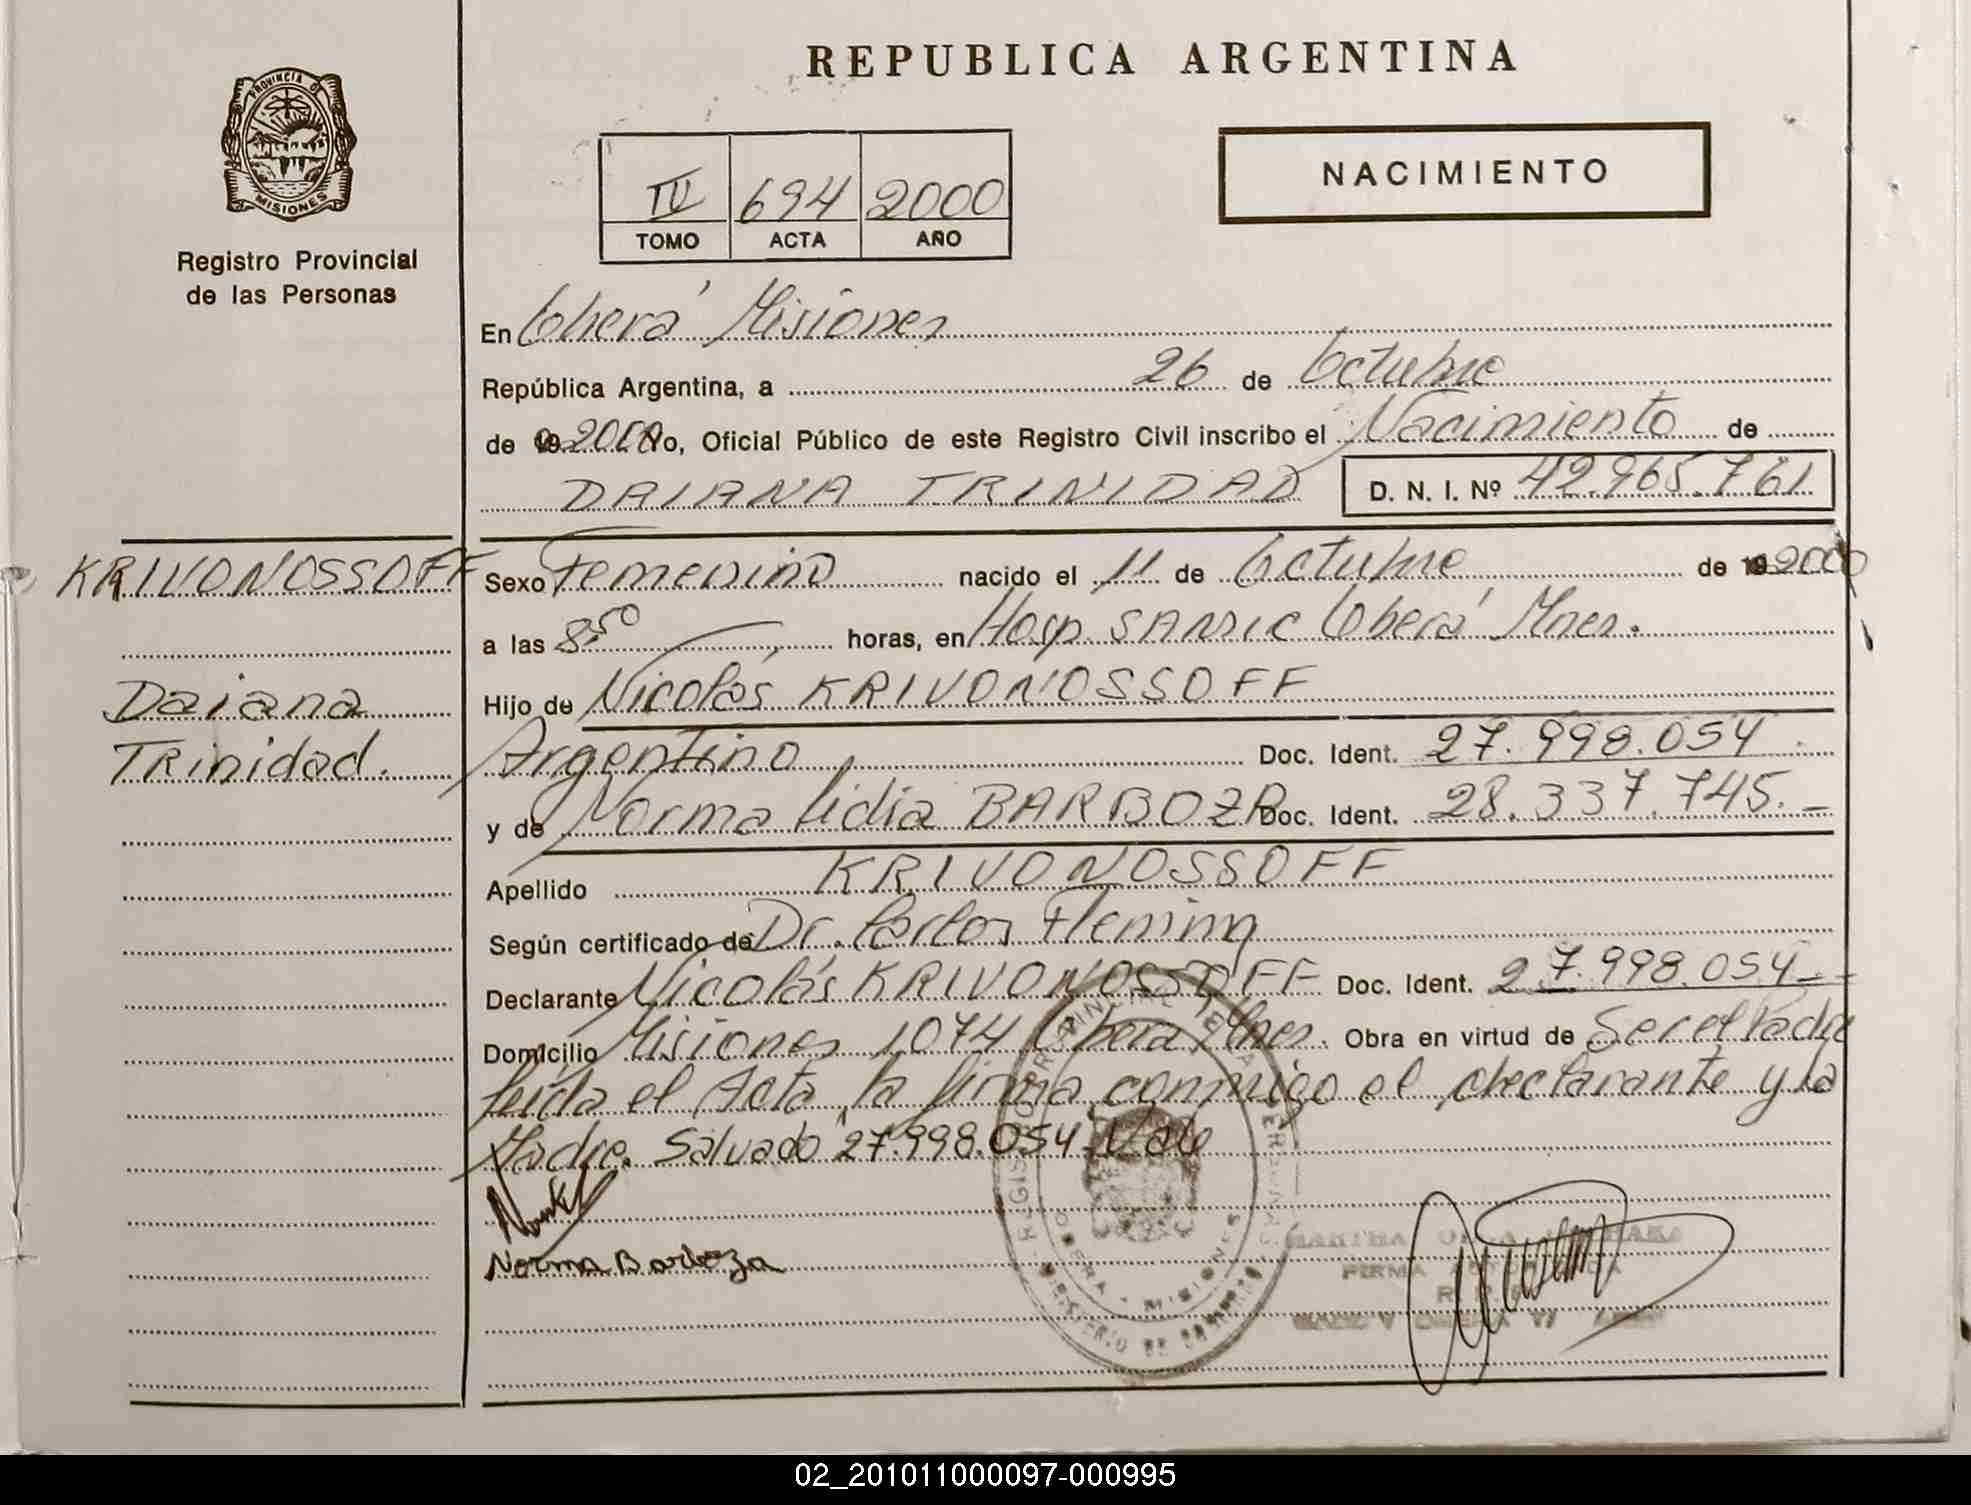 REPUBLICA ARGENTINA
PROVINCIA DE
MISIONES
Registro Provincial
de las Personas
IV 694 2000
TOMO ACTA AÑO
NACIMIENTO
En Oberá Misiones
República Argentina, a 26 de Octubre
de 2000 Yo, Oficial Público de este Registro Civil inscribo el Nacimiento de
DAIANA TRINIDAD D. N. I. Nº 42.965.761
KRIVONOSSOFF
Daiana
Trinidad.
Sexo Femenino nacido el 11 de Octubre de 2000
a las 8:50 horas, en Hosp. SAMIC Oberá Mnes.
Hijo de Nicolás KRIVONOSSOFF
Argentino Doc. Ident. 27.998.054
y de Norma Lidia BARBOZA Doc. Ident. 28.337.745.-
Apellido KRIVONOSSOFF
Según certificado de Dr. Carlos Fleming
Declarante Nicolás KRIVONOSSOFF Doc. Ident. 27.998.054.-
Domicilio Misiones 1074 Oberá Mnes. Obra en virtud de Ser el Padre
leída el Acta, la firma conmigo el declarante y la
Madre. Salvado 27.998.054. Vale
Norma Barboza
MARTHA
FIRMA
OBERA - MISIONES
02_201011000097-000995